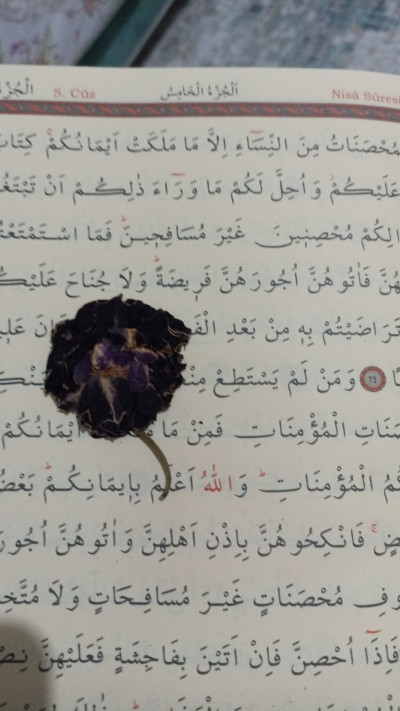 اَلْجُزْءُ الْخَامِسُ
5. Cüz
Nisâ Sûresi
مُحْصَنَاتُ مِنَ النِّسَٓاءِ اِلَّا مَا مَلَكَتْ اَيْمَانُكُمْۚ كِتَابَ
عَلَيْكُمْۚ وَاُحِلَّ لَكُمْ مَا وَرَٓاءَ ذٰلِكُمْ اَنْ تَبْتَغُ
الِكُمْ مُحْصِن۪ينَ غَيْرَ مُسَافِح۪ينَۜ فَمَا اسْتَمْتَعْتُ
هُنَّ فَاٰتُوهُنَّ اُجُورَهُنَّ فَر۪يضَةًۜ وَلَا جُنَاحَ عَلَيْك
تَرَاضَيْتُمْ بِه۪ مِنْ بَعْدِ الْفَ انَ عَل۪ي
ا ٢٤ وَمَنْ لَمْ يَسْتَطِعْ مِنْ نْك
صَنَاتِ الْمُؤْمِنَاتِ فَمِنْ مَا اَيْمَانُكُمْ
كُمُ الْمُؤْمِنَاتِۜ وَاللّٰهُ اَعْلَمُ بِا۪يمَانِكُمْۜ بَعْضُ
ضٍۚ فَانْكِحُوهُنَّ بِاِذْنِ اَهْلِهِنَّ وَاٰتُوهُنَّ اُجُورَ
وفِ مُحْصَنَاتٍ غَيْرَ مُسَافِحَاتٍ وَلَا مُتَّخِ
فَاِذَٓا اُحْصِنَّ فَاِنْ اَتَيْنَ بِفَاحِشَةٍ فَعَلَيْهِنَّ نِصْ